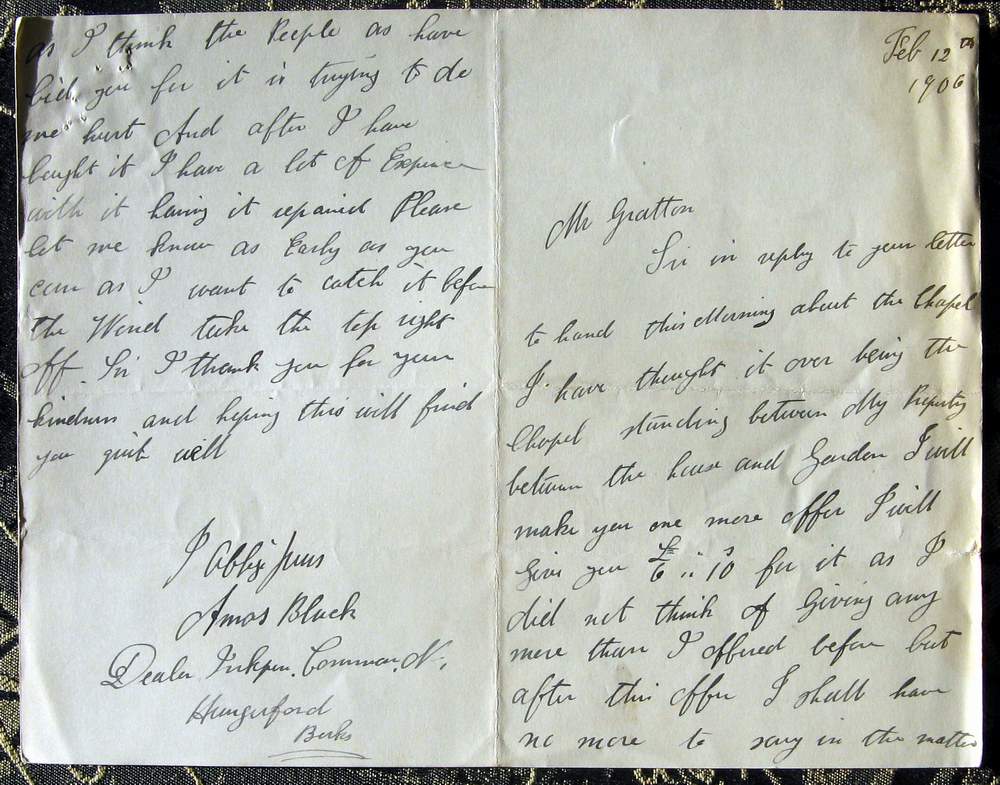 Feb 12th
1906
Mr Gratton
Sir in reply to your letter
to hand this Morning about the Chapel
I have thought it over being the
Chapel standing between My Property
between the house and Garden I will
make you one more offer I will
Give you £6 .. 10s for it as I
did not think of Giving any
more than I offered before but
after this offer I shall have
no more to say in the matter
as I think the People as have
bid you for it is trying to do
me hurt And after I have
bought it I have a lot of Expence
with it having it repaired Please
let me know as Early as you
can as I want to catch it before
the Wind take the top right
off. Sir I thank you for your
kindness and hoping this will find
you quite well
Amos Black
Dealer Inkpen. Common. N.
Hungerford
Berks